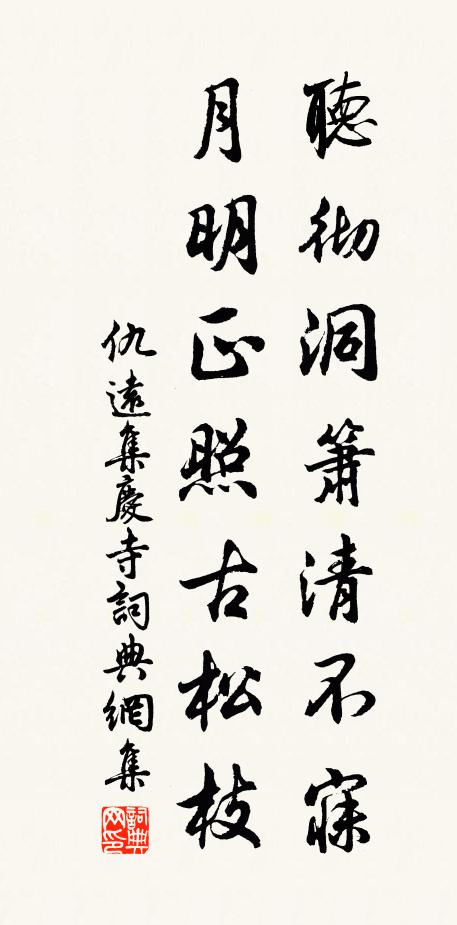 聽彻洞簫清不寐
月明正照古松枝
仇遠集慶寺詞典網集
詞典网印